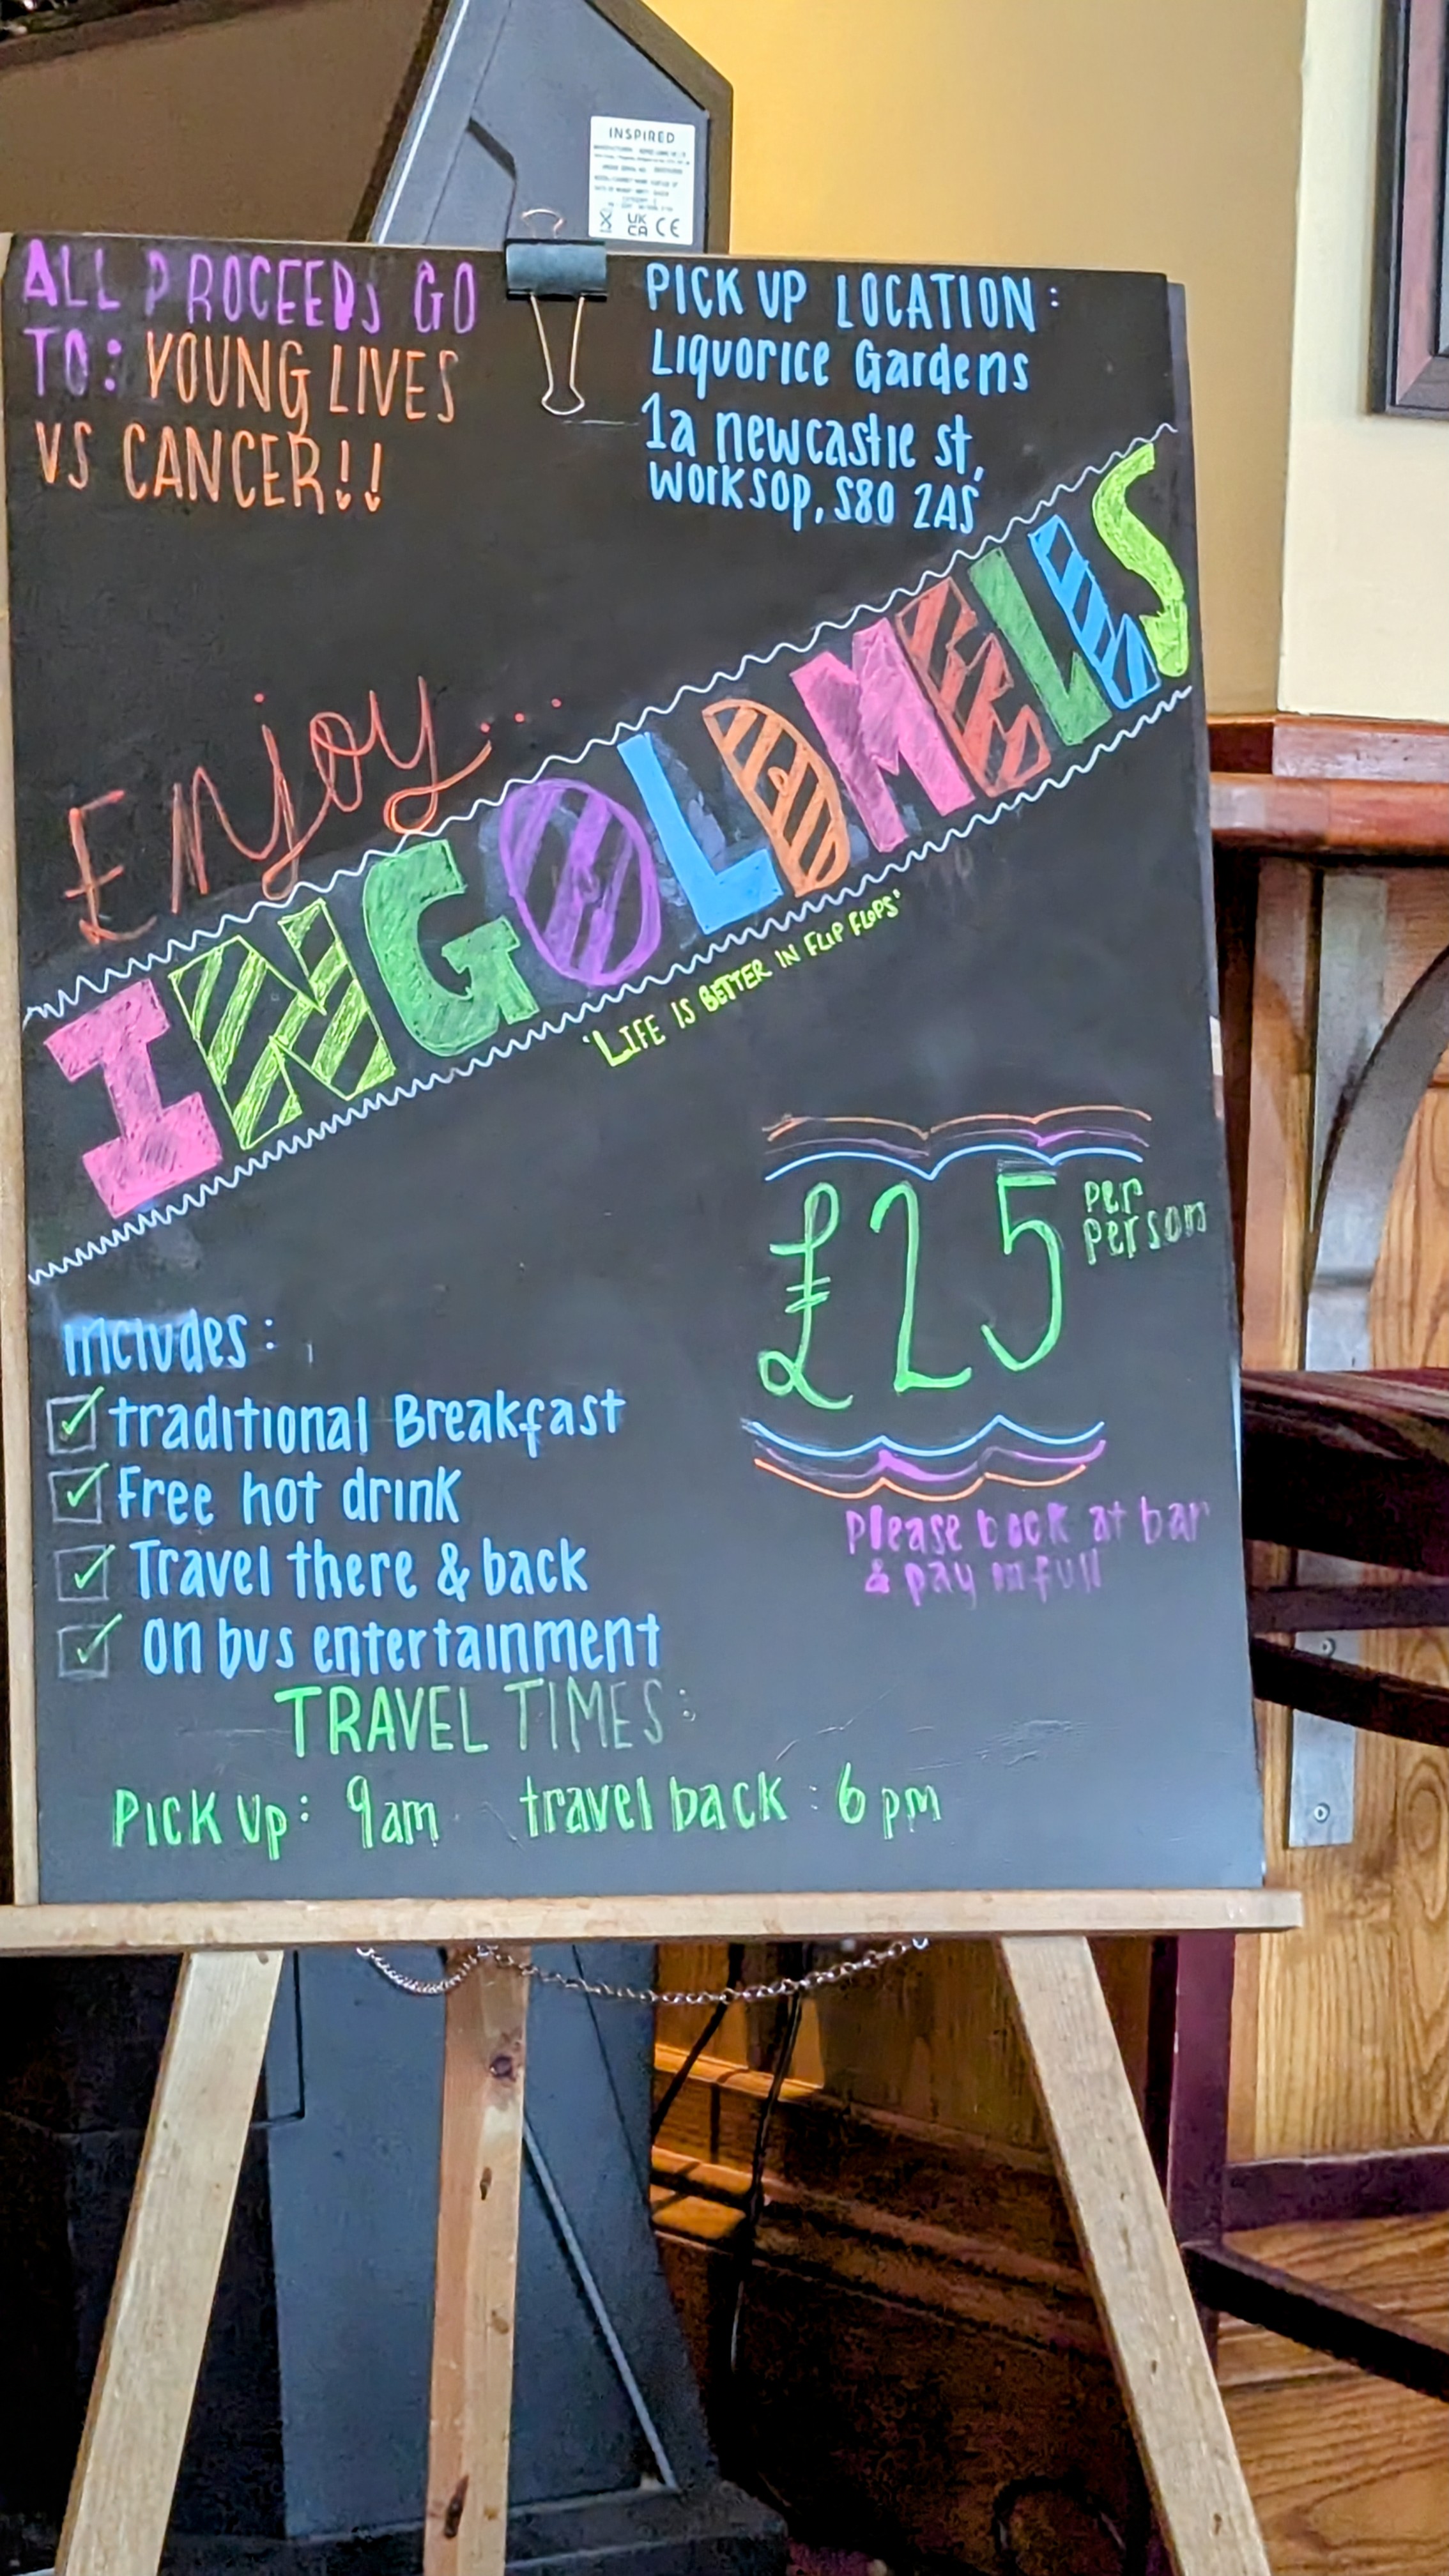 INSPIRED
UK
CA CE
ALL PROCEEDS GO
TO: YOUNG LIVES
VS CANCER!!
PICK UP LOCATION:
Liquorice Gardens
1a newcastle st,
worksop, S80 2AS
Enjoy...
INGOLDMELLS
'LIFE IS BETTER IN FLIP FLOPS'
£25 per
person
Please book at bar
& pay in full
includes:
traditional Breakfast
Free hot drink
Travel there & back
On bus entertainment
TRAVEL TIMES:
Pick up: 9am travel back: 6pm